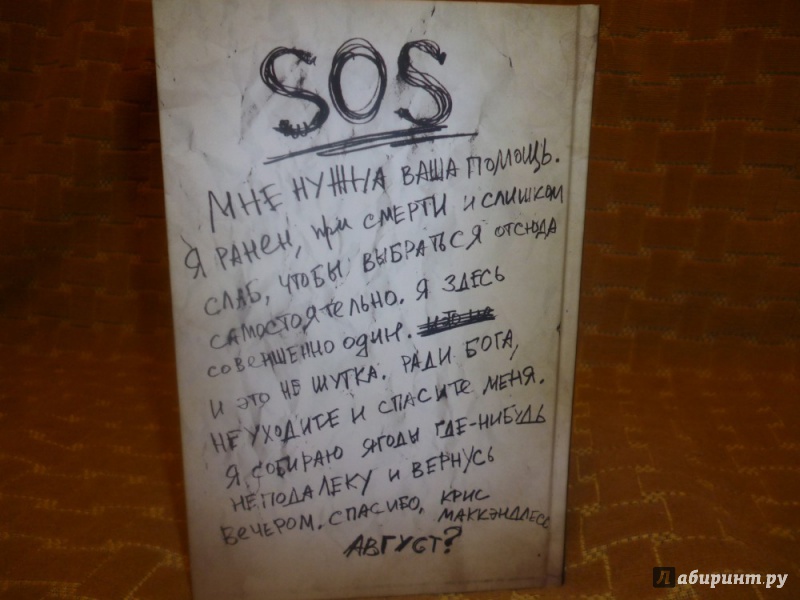 SOS
МНЕ НУЖНА ВАША ПОМОЩЬ.
Я РАНЕН, при СМЕРТИ И СЛИШКОМ
СЛАБ, ЧТОБЫ ВЫБРАТЬСЯ ОТСЮДА
САМОСТОЯТЕЛЬНО. Я ЗДЕСЬ
СОВЕНШЕННО ОДИН.
И ЭТО НЕ ШУТКА. РАДИ БОГА,
НЕ УХОДИТЕ И СПАСИТЕ МЕНЯ.
Я СОБИРАЮ ЯГОДЫ ГДЕ-НИБУДЬ
НЕПОДАЛЕКУ И ВЕРНУСЬ
ВЕЧЕРОМ. СПАСИБО, КРИС
МАККЭНДЛЕСС
АВГУСТ?
Лабиринт.ру